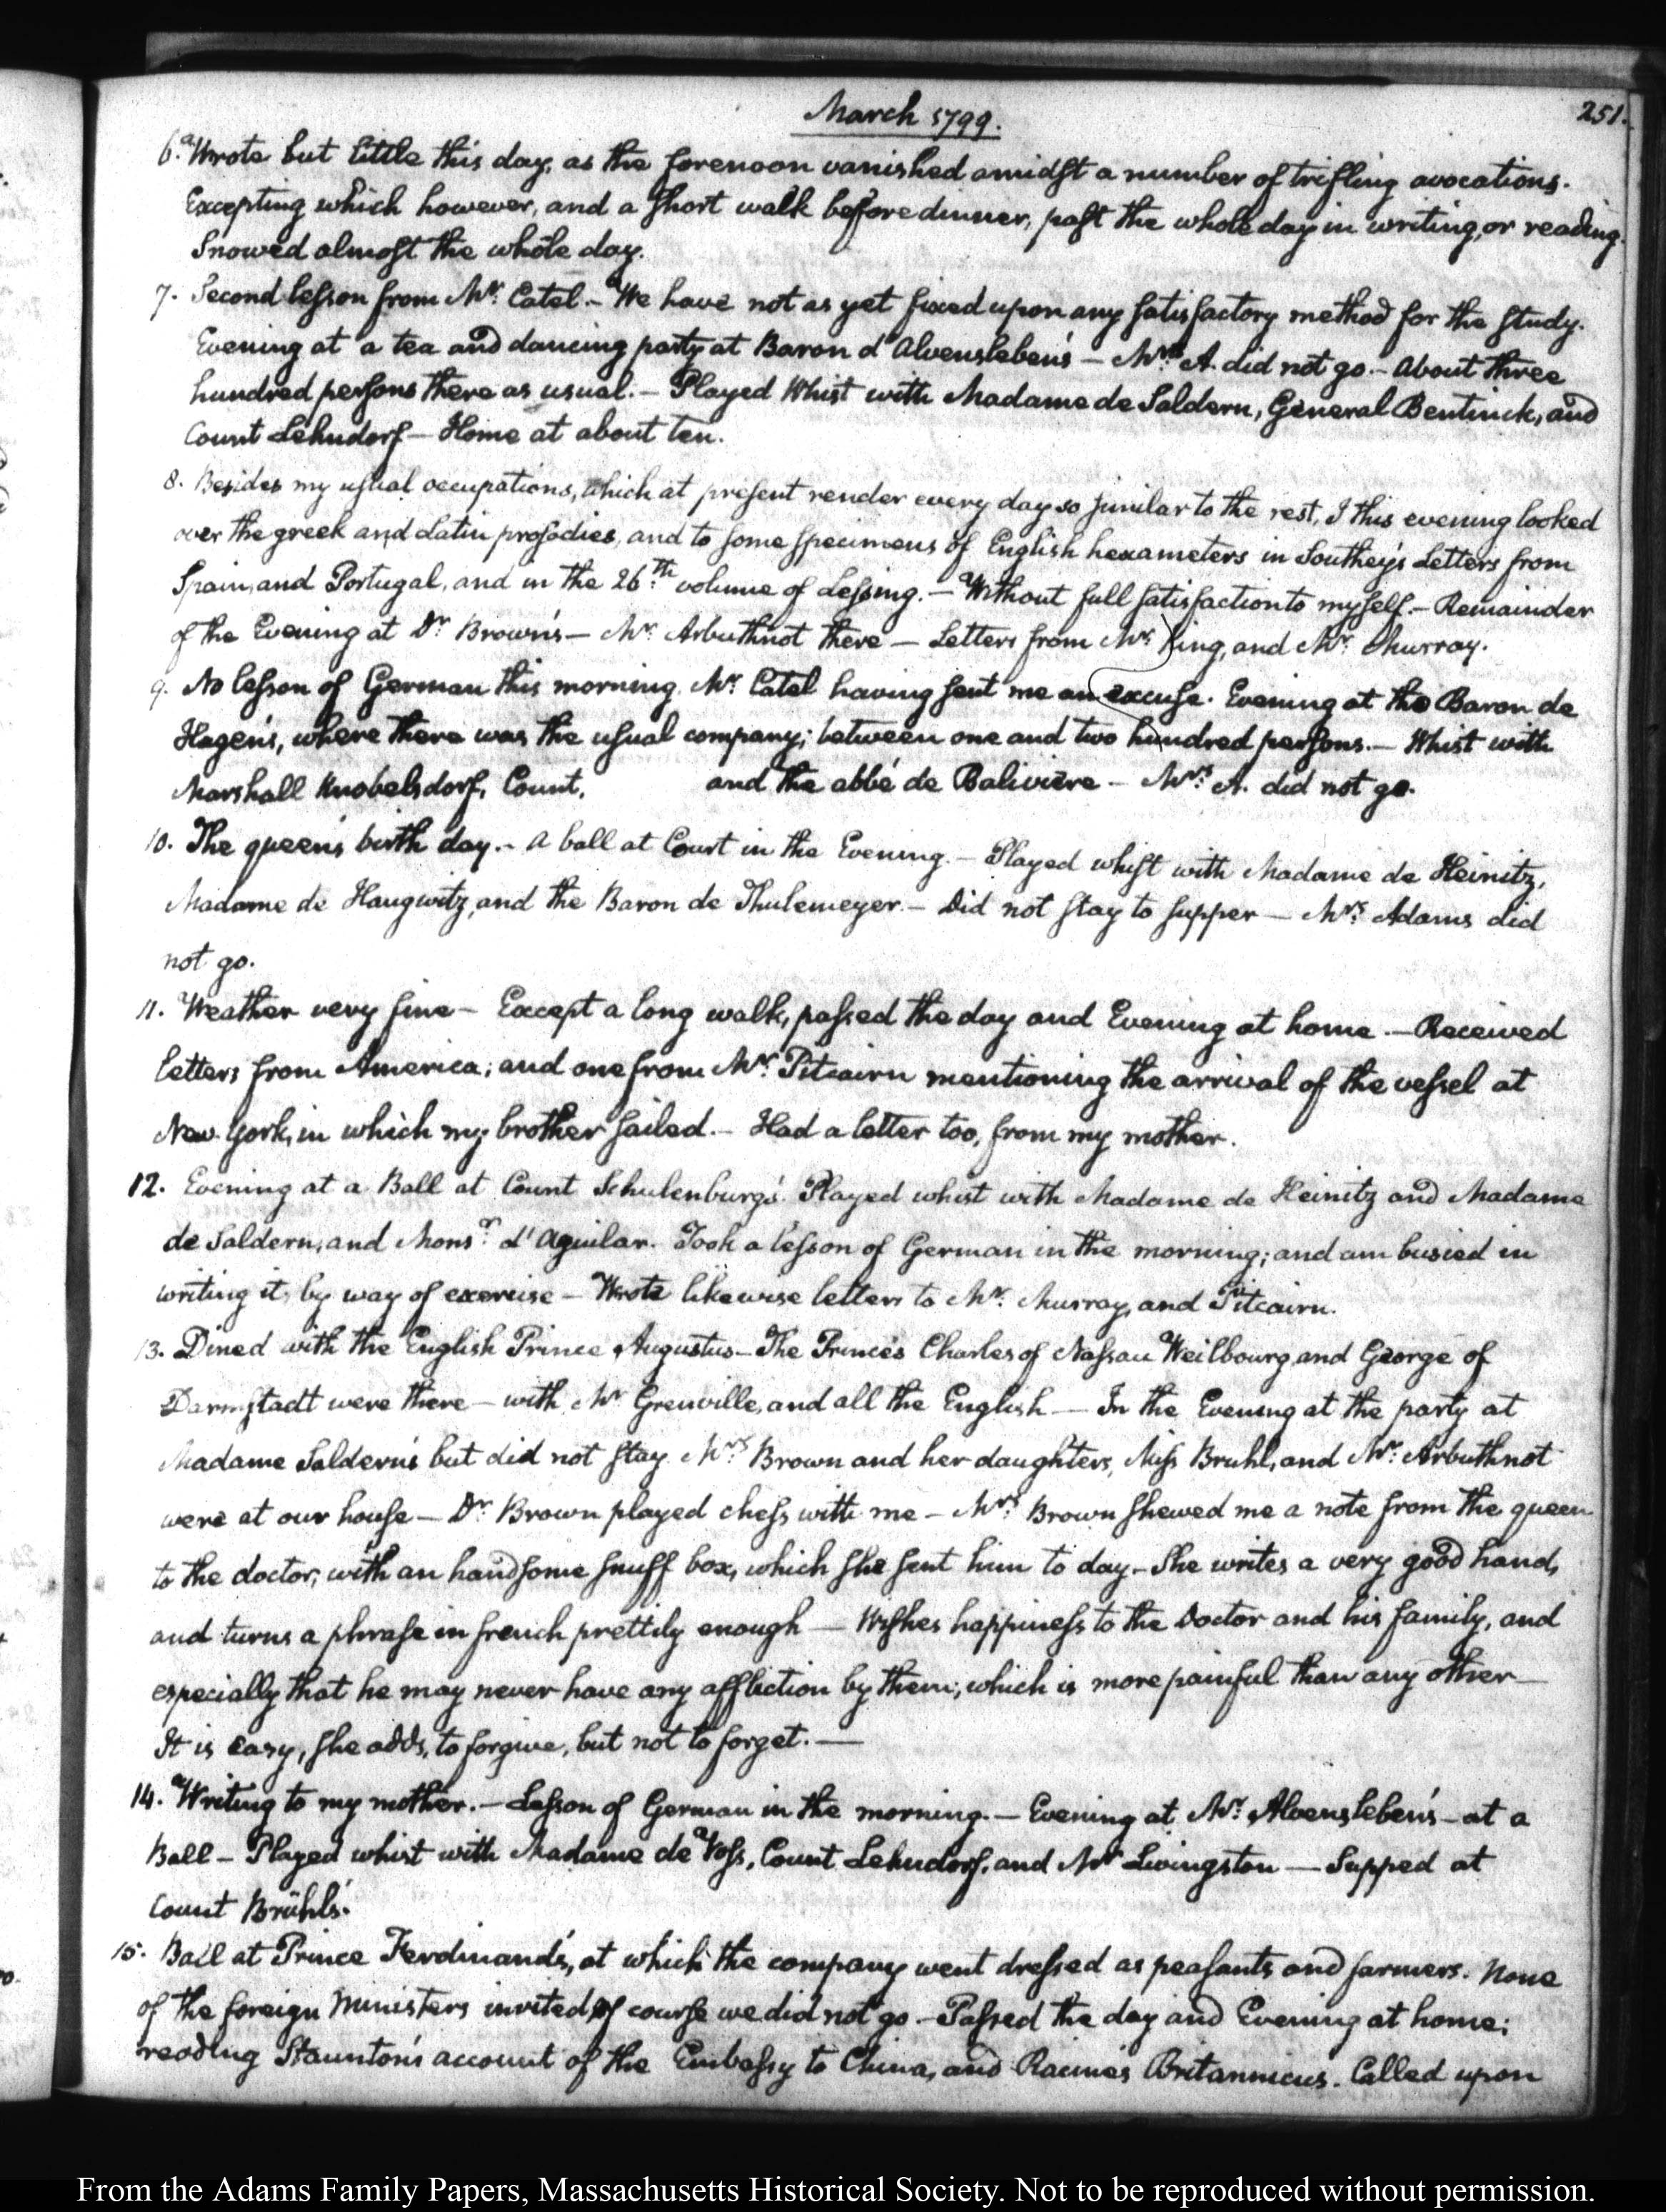 March 1799.
251.
6. Wrote but little this day, as the forenoon vanished amidst a number of trifling avocations.
Excepting which however, and a short walk before dinner, past the whole day in writing, or reading.
Snowed almost the whole day.
7. Second lesson from Mr. Catel. – We have not as yet fixed upon any satisfactory method for the study.
Evening at a tea and dancing party at Baron d'Alvensleben's – Mrs. A. did not go. – About three
hundred persons there as usual. – Played Whist with Madame de Saldern, General Bentinck, and
Count Lehndorf – Home at about ten.
8. Besides my usual occupations, which at present render every day so similar to the rest, I this evening looked
over the greek and Latin prosodies, and to some specimens of English hexameters in Southey's Letters from
Spain, and Portugal, and in the 26th. volume of Lessing. – Without full satisfaction to myself. – Remainder
of the Evening at Dr. Brown's – Mr. Arbuthnot there – Letters from Mr. King, and Mr. Murray.
9. No lesson of German this morning. Mr. Catel having sent me an excuse. Evening at the Baron de
Hagen's, where there was the usual company; between one and two hundred persons. – Whist with
Marshall Knobelsdorf, Count, and the abbé de Balivière – Mrs. A. did not go.
10. The queen's birth day. – A ball at Court in the Evening. – Played whist with Madame de Heinitz,
Madame de Haugwitz, and the Baron de Thulemeyer. – Did not stay to supper – Mrs. Adams did
not go.
11. Weather very fine – Except a long walk, passed the day and Evening at home. – Received
letters from America; and one from Mr. Pitcairn mentioning the arrival of the vessel at
New-York, in which my brother sailed. – Had a letter too, from my mother.
12. Evening at a Ball at Count Schulenburg's. Played whist with Madame de Heinitz and Madame
de Saldern, and Monsr. d'Aguilar. Took a lesson of German in the morning; and am busied in
writing it, by way of exercise – Wrote likewise letters to Mr. Murray, and Pitcairn.
13. Dined with the English Prince Augustus – The Princes Charles of Nassau Weilbourg, and George of
Darmstadt were there – with Mr Grenville, and all the English – In the Evening at the party at
Madame Saldern's but did not stay. Mrs. Brown and her daughters, Miss Bruhl, and Mr. Arbuthnot
were at our house – Dr. Brown played chess with me – Mrs. Brown shewed me a note from the queen
to the doctor, with an handsome snuff box, which she sent him to day – She writes a very good hand,
and turns a phrase in french prettily enough – Wishes happiness to the Doctor and his family, and
especially that he may never have any affliction by them; which is more painful than any other –
It is easy, she adds, to forgive, but not to forget. –
14. Writing to my mother. – Lesson of German in the morning. – Evening at Mr. Alvensleben's – at a
Ball – Played whist with Madame de Voss, Count Lehndorf, and Mr Livingston – Supped at
Count Brühl's.
15. Ball at Prince Ferdinand's, at which the company went dressed as peasants and farmers. None
of the foreign Ministers invited, of course we did not go. – Passed the day and Evening at home;
reading Staunton's account of the Embassy to China, and Racine's Britannicus. Called upon
From the Adams Family Papers, Massachusetts Historical Society. Not to be reproduced without permission.